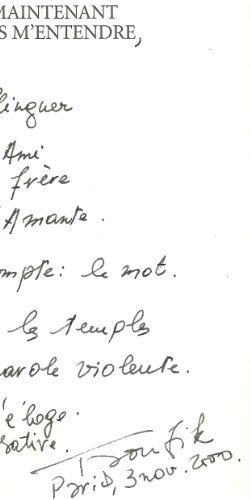 MAINTENANT
S M'ENTENDRE,
linguer
Ami
frère
Amante.
ompte: le mot.
les temples
arole violente.
l'éloge.
sative.
Toufik
Paris, 3 nov. 2000.